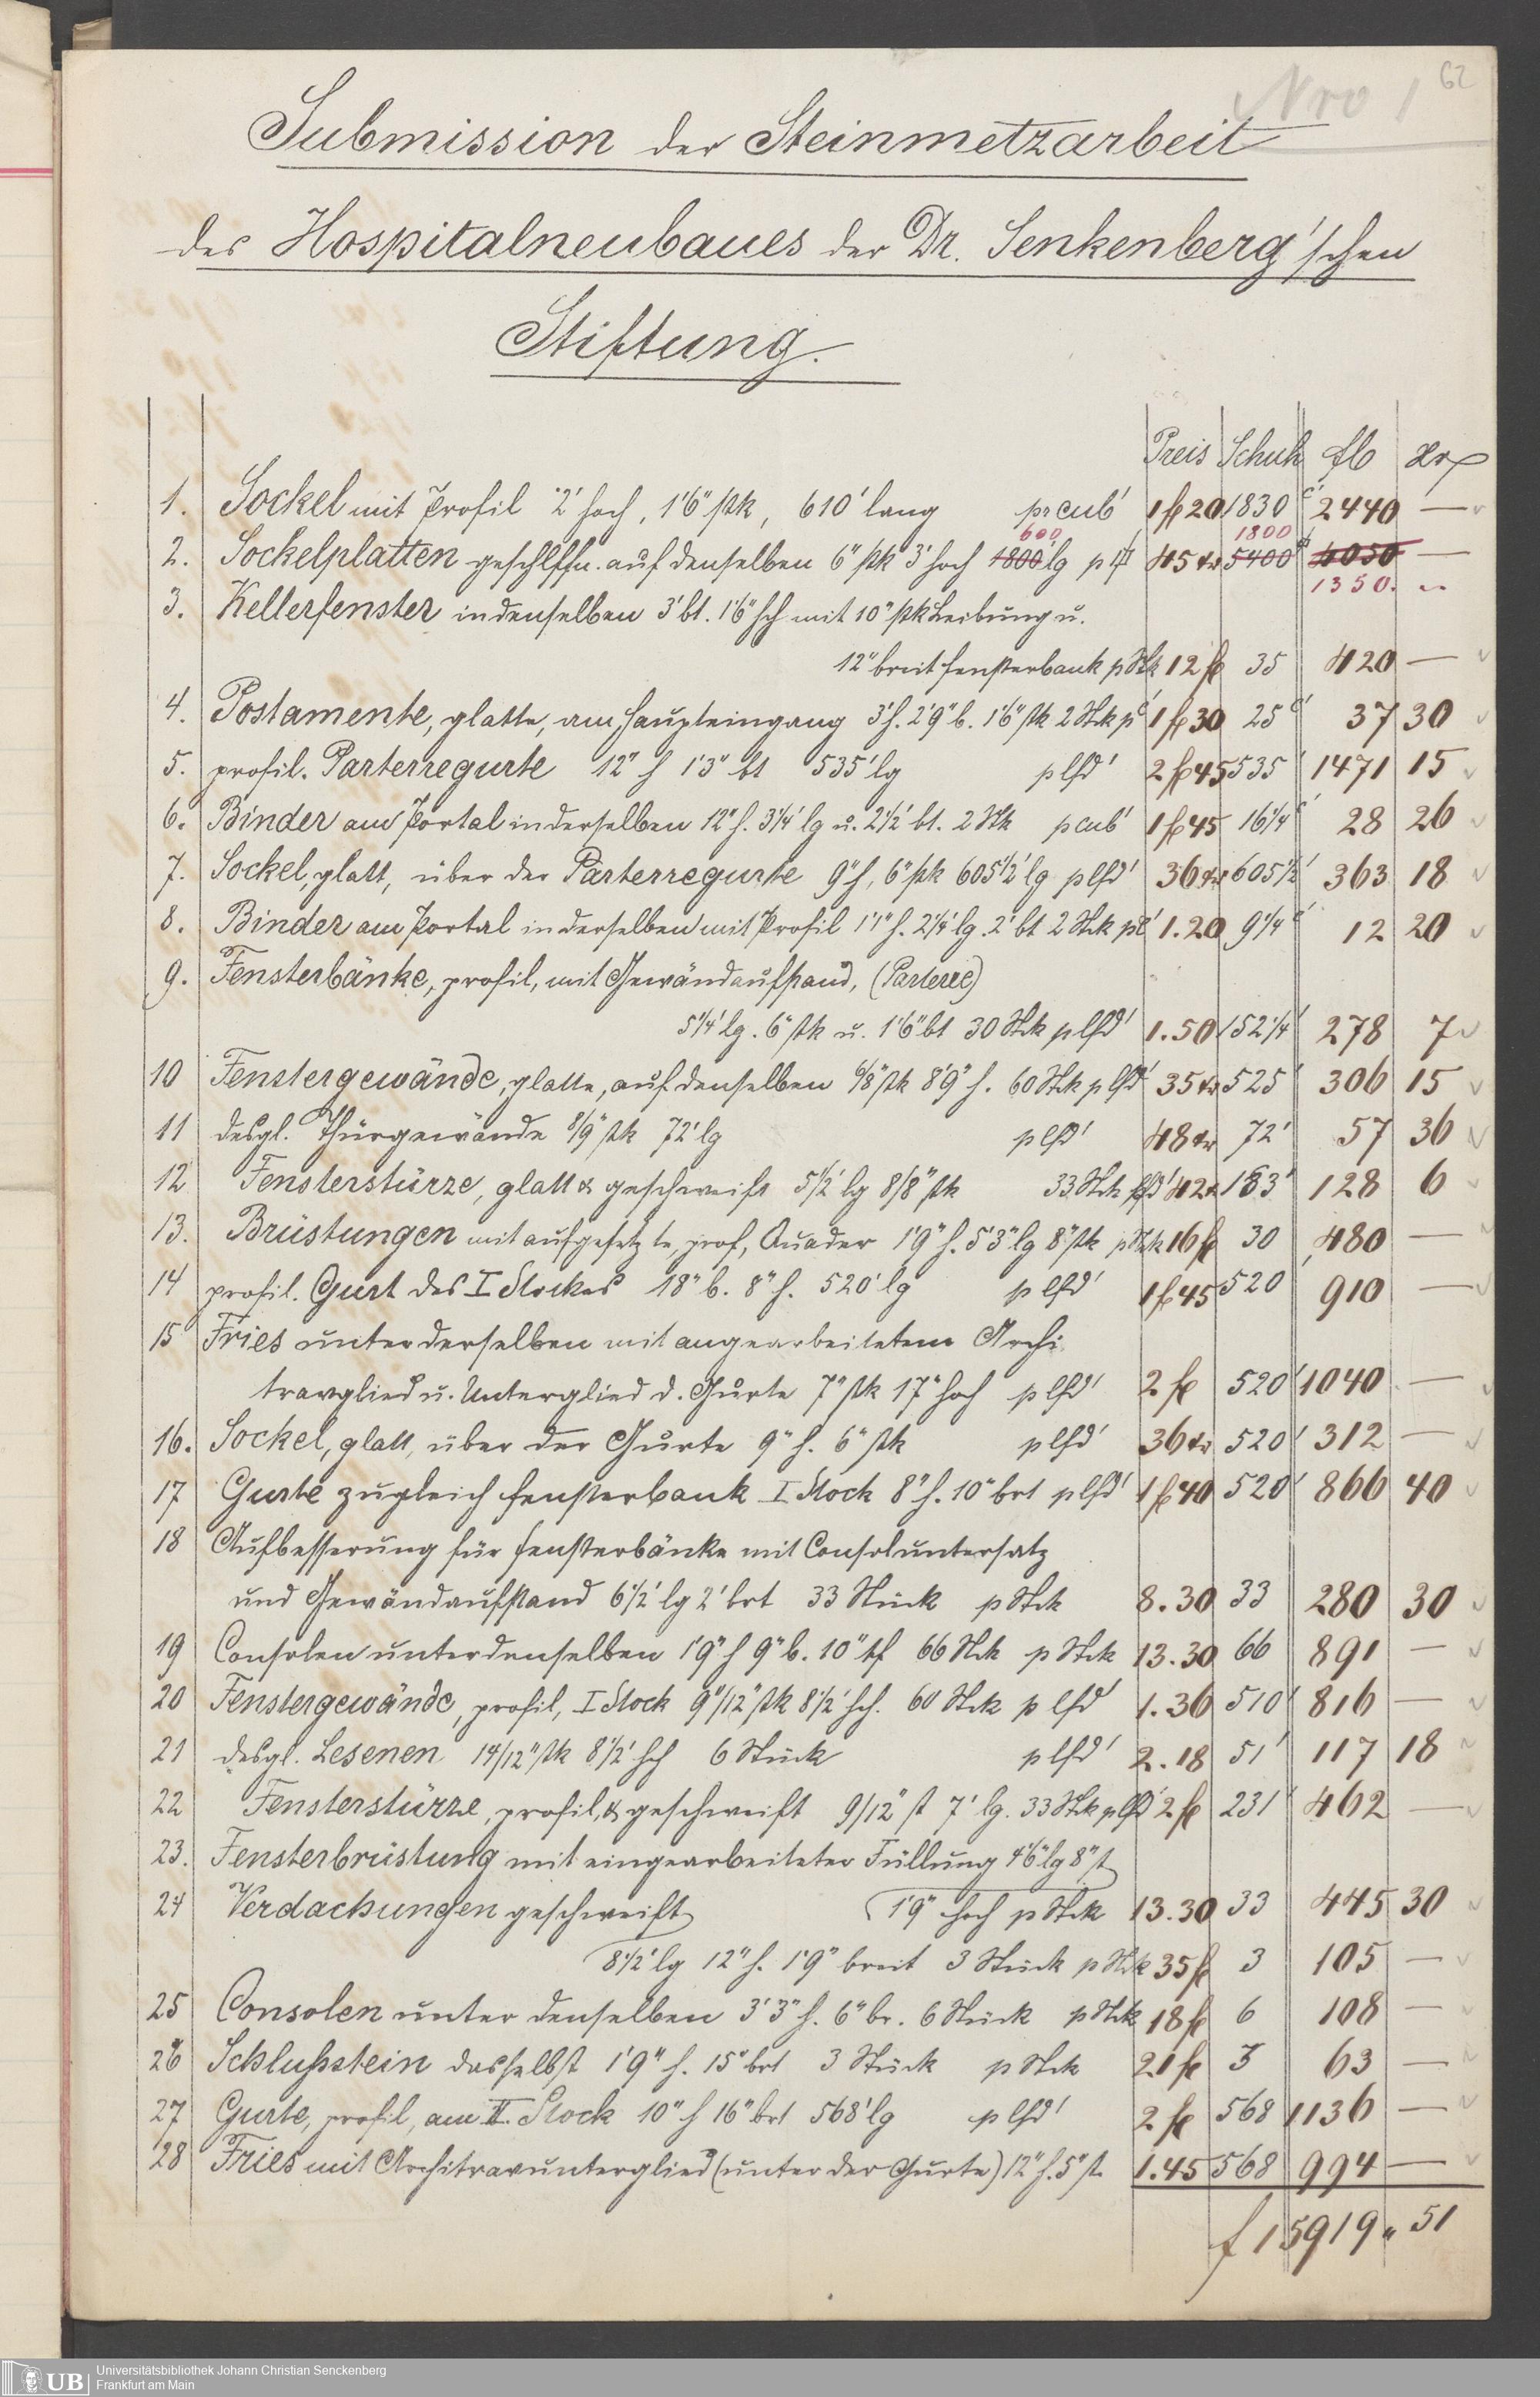 Nro 1 62
Submission der Steinmetzarbeit
des Hospitalneubaues der Dr. Senkenberg'schen
Stiftung.
Preis Schuh fl xr
1. Sockel mit Profil 2' hoch, 1'6" stk, 610' lang pr cub' 1 fl 20 1830 c' 2440 —
600 1800
2. Sockelplatten geschlffn. auf denselben 6" stk 3' hoch 1800' lg p 45 xr 5400 4050 —
1350. "
3. Kellerfenster in denselben 3' bt. 1'6" hch mit 10" stk Leibung u.
12" breit Fensterbank p Stk 12 fl 35 420 —
4. Postamente, glatte, am Haupteingang 3' h. 2'9" b. 1'6" stk 2 Stck p c' 1 fl 30 25 c' 37 30
5. profil. Parterregurte 12" h 1'3" bt 535' lg p lfd' 2 fl 45 535' 1471 15
6. Binder am Portal in derselben 12" h. 3 1/4' lg u. 2 1/2' bt. 2 Stk p cub' 1 fl 45 16 1/4 c' 28 26
7. Sockel, glatt, über der Parterregurte 9" h, 6" stk 605 1/2' lg p lfd' 36 xr 605 1/2' 363 18
8. Binder am Portal in derselben mit Profil 1'1" h. 2 1/4' lg. 2' bt 2 Stck p c' 1.20 9 1/4 c' 12 20
9. Fensterbänke, profil, mit Gewändaufstand, (Parterre)
5 1/4' lg. 6" stk u. 1'6" bt 30 Stck p lfd' 1.50 152 1/4' 278 7
10 Fenstergewände, glatte, auf denselben 6/8" stk 8'9" h. 60 Stck p lfd' 35 xr 525' 306 15
11 desgl. Thürgewände 8/9" stk 72' lg p lfd' 48 xr 72' 57 36
12 Fensterstürze, glatt & geschweift 5 1/2' lg 8/8" stk 33 Stck lfd' 42 xr 183' 128 6
13. Brüstungen mit aufgesetzte prof, Quader 1'9" h. 5'3" lg 8" stk p Stck 16 fl 30 480 —
14 profil. Gurt des I Stockes 18" b. 8" h. 520' lg p lfd' 1 fl 45 520' 910 —
15 Fries unter derselben mit angearbeitetem Archi
travglied u. Unterglied d. Gurte 7" stk 17" hoch p lfd' 2 fl 520' 1040 —
16. Sockel, glatt, über der Gurte 9" h. 6" stk p lfd' 36 xr 520' 312 —
17 Gurte zugleich Fensterbank I Stock 8" h. 10" brt p lfd' 1 fl 40 520' 866 40
18 Aufbesserung für Fensterbänke mit Consoluntersatz
und Gewändaufstand 6 1/2' lg 2' brt 33 Stück p Stck 8.30 33 280 30
19 Consolen unter denselben 1'9" h 9" b. 10" tf 66 Stck p Stck 13.30 66 891 —
20 Fenstergewände, profil, I Stock 9"/12" stk 8 1/2' hch. 60 Stck p lfd' 1.36 510' 816 —
21 desgl. Lesenen 14/12" stk 8 1/2' hch 6 Stück p lfd' 2.18 51' 117 18
22 Fensterstürze, profil, & geschweift 9/12" st 7' lg. 33 Stck p lfd' 2 fl 231' 462 —
23. Fensterbrüstung mit eingearbeiteter Füllung 4'6" lg 8" st
24 Verdachungen geschweift 1'9" hoch p Stck 13.30 33 445 30
8 1/2' lg 12" h. 1'9" breit 3 Stück p Stck 35 fl 3 105 —
25 Consolen unter denselben 3'3" h. 6" br. 6 Stück p Stck 18 fl 6 108 —
26 Schlußstein daselbst 1'9" h. 15" brt 3 Stück p Stck 21 fl 3 63 —
27 Gurte, profil, am II. Stock 10" h 16" brt 568' lg p lfd' 2 fl 568 1136 —
28 Fries mit Architravunterglied (unter der Gurte) 12" h. 5" st. 1.45 568 994 —
f 15919 " 51
UB Universitätsbibliothek Johann Christian Senckenberg
Frankfurt am Main